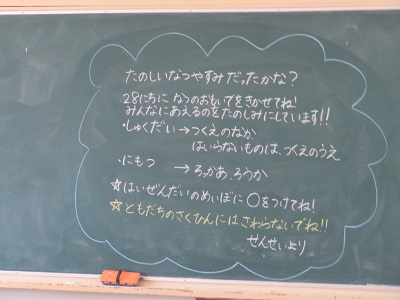 たのしいなつやすみだったかな？
28にちに なつのおもいでをきかせてね！
みんなにあえるのをたのしみにしています!!
・しゅくだい→つくえのなか
はいらないものは、つくえのうえ
・にもつ →ろっかあ、ろうか
☆はいぜんだいのめいぼに〇をつけてね！
☆ともだちのさくひんにはさわらないでね!!
せんせいより